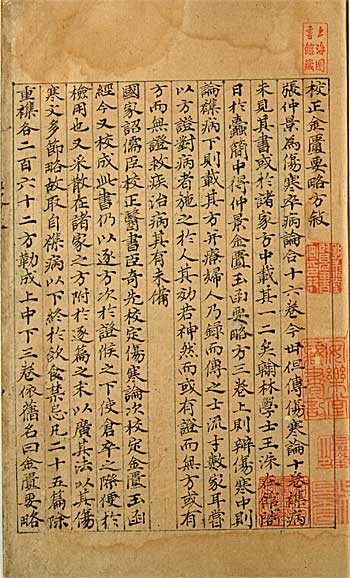 上海圖書館藏
校正金匱要略方敘
張仲景為傷寒卒病論合十六卷今世但傳傷寒論十卷雜病
未見其書或於諸家方中載其一二矣翰林學士王洙在館閣
日於蠹簡中得仲景金匱玉函要略方三卷上則辯傷寒中則
論雜病下則載其方并療婦人乃録而傳之士流才數家耳嘗
以方證對病者施之於人其効若神然而或有證而無方或有
方而無證救疾治病其有未備
國家詔儒臣校正醫書臣奇先校定傷寒論次校定金匱玉函
經今又校成此書仍以逐方次於證候之下使倉卒之際便於
檢用也又采散在諸家之方附於逐篇之末以廣其法以其傷
寒文多節略故取自雜病以下終於飲食禁忌凡二十五篇除
重複合二百六十二方勒成上中下三卷依舊名曰金匱要略